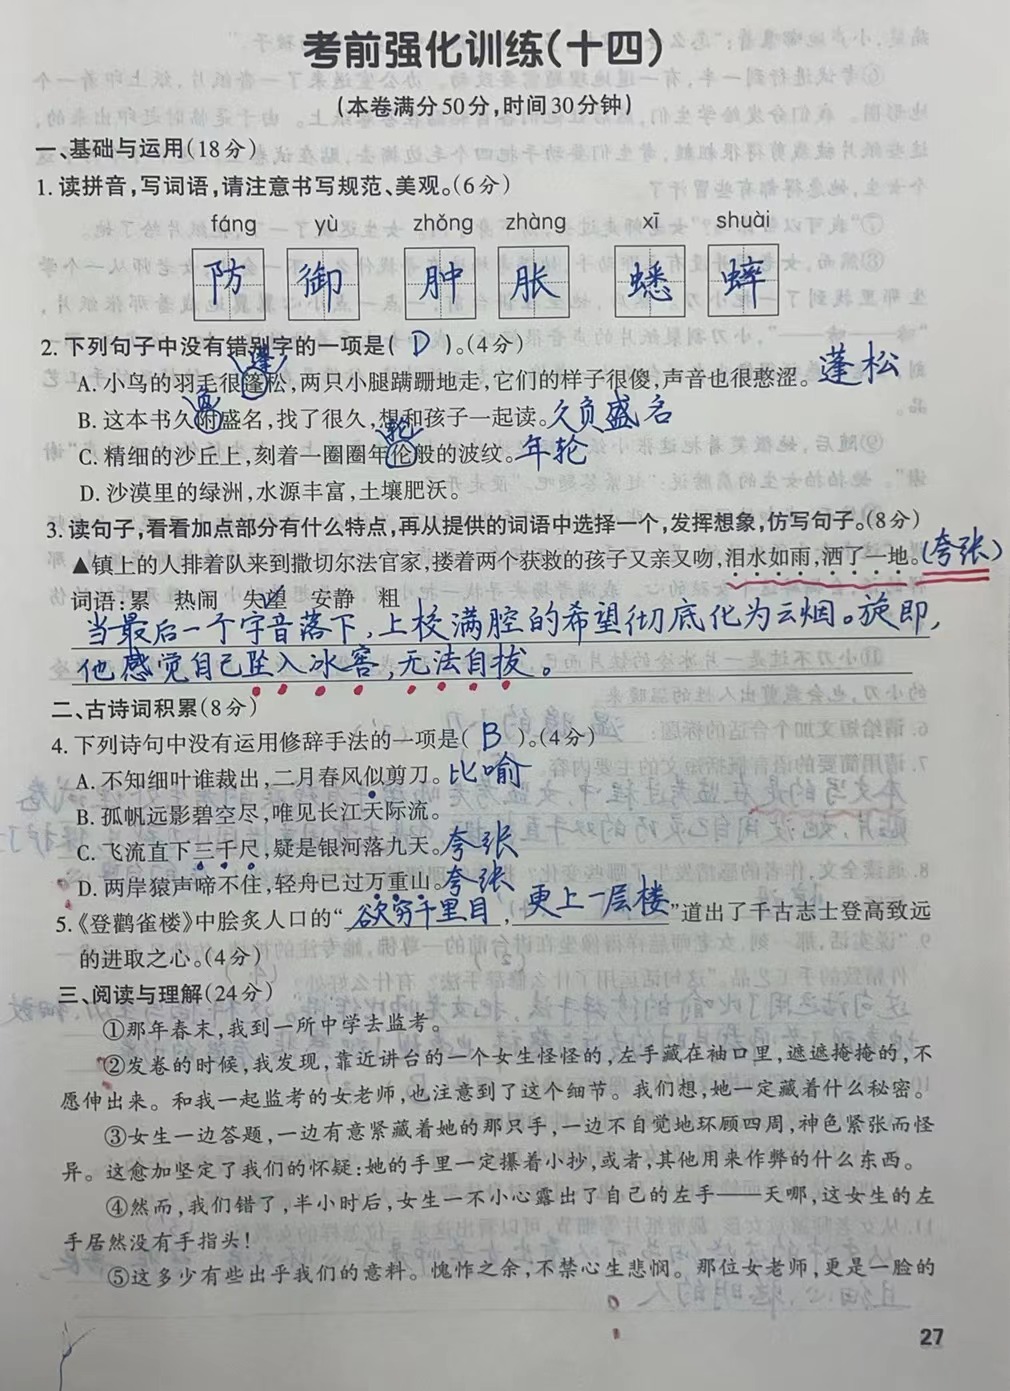 考前强化训练(十四)
(本卷满分50分,时间30分钟)
一、基础与运用(18分)
1.读拼音,写词语,请注意书写规范、美观。(6分)
fáng yù zhǒng zhàng xī shuài
防 御 肿 胀 蟋 蟀
2.下列句子中没有错别字的一项是( D )。(4分)
蓬
A.小鸟的羽毛很篷松,两只小腿蹒跚地走,它们的样子很傻,声音也很憨涩。蓬松
负
B.这本书久附盛名,找了很久,想和孩子一起读。久负盛名
轮
C.精细的沙丘上,刻着一圈圈年伦般的波纹。年轮
D.沙漠里的绿洲,水源丰富,土壤肥沃。
3.读句子,看看加点部分有什么特点,再从提供的词语中选择一个,发挥想象,仿写句子。(8分)
▲镇上的人排着队来到撒切尔法官家,搂着两个获救的孩子又亲又吻,泪水如雨,洒了一地。(夸张)
词语:累 热闹 失望 安静 粗
当最后一个字音落下,上校满腔的希望彻底化为云烟。旋即,
他感觉自己坠入冰窖,无法自拔。
二、古诗词积累(8分)
4.下列诗句中没有运用修辞手法的一项是( B )。(4分)
A.不知细叶谁裁出,二月春风似剪刀。比喻
B.孤帆远影碧空尽,唯见长江天际流。
C.飞流直下三千尺,疑是银河落九天。夸张
D.两岸猿声啼不住,轻舟已过万重山。夸张
5.《登鹳雀楼》中脍炙人口的“欲穷千里目,更上一层楼”道出了千古志士登高致远
的进取之心。(4分)
三、阅读与理解(24分)
①那年春末,我到一所中学去监考。
②发卷的时候,我发现,靠近讲台的一个女生怪怪的,左手藏在袖口里,遮遮掩掩的,不
愿伸出来。和我一起监考的女老师,也注意到了这个细节。我们想,她一定藏着什么秘密。
③女生一边答题,一边有意紧藏着她的那只手,一边不自觉地环顾四周,神色紧张而怪
异。这愈加坚定了我们的怀疑:她的手里一定攥着小抄,或者,其他用来作弊的什么东西。
④然而,我们错了,半小时后,女生一不小心露出了自己的左手——天哪,这女生的左
手居然没有手指头!
⑤这多少有些出乎我们的意料。愧怍之余,不禁心生悲悯。那位女老师,更是一脸的
27